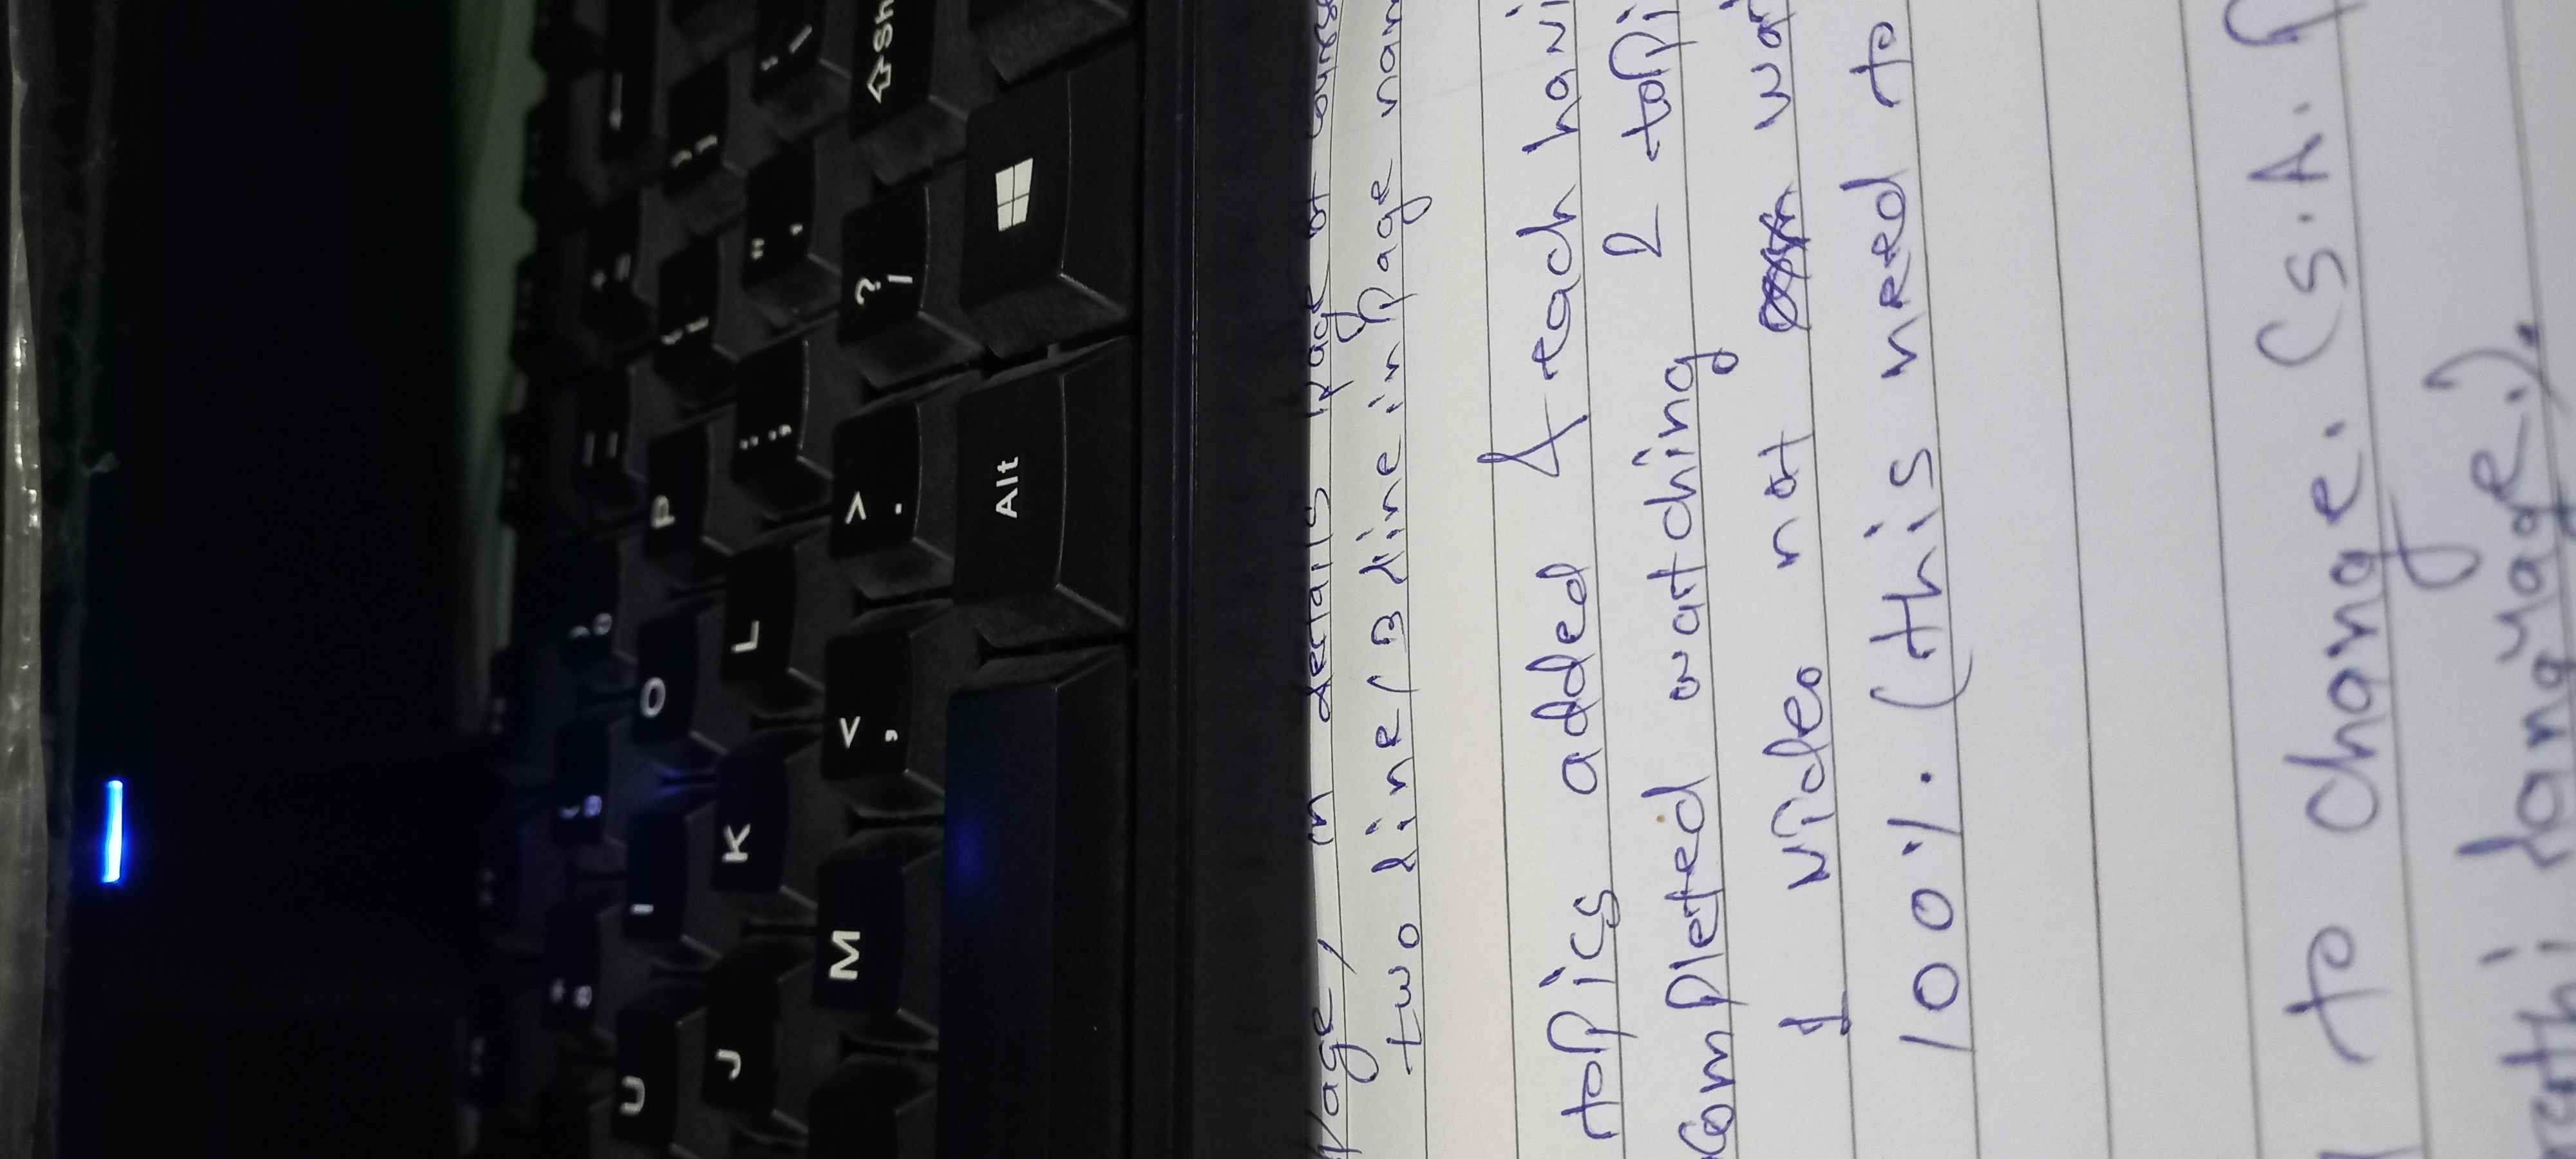 * 8
( 9
) 0
_ -
+ =
←
U I O P { [ } ]
J K L : ; " '
M < , > . ? / Sh
Alt
Page, in details page of course
two line/3 line in Page nam
topics added & each havi
completed watching 2 topi
1 video not wat
100%. (this need to
to change. (S.A. P
rathi language.).